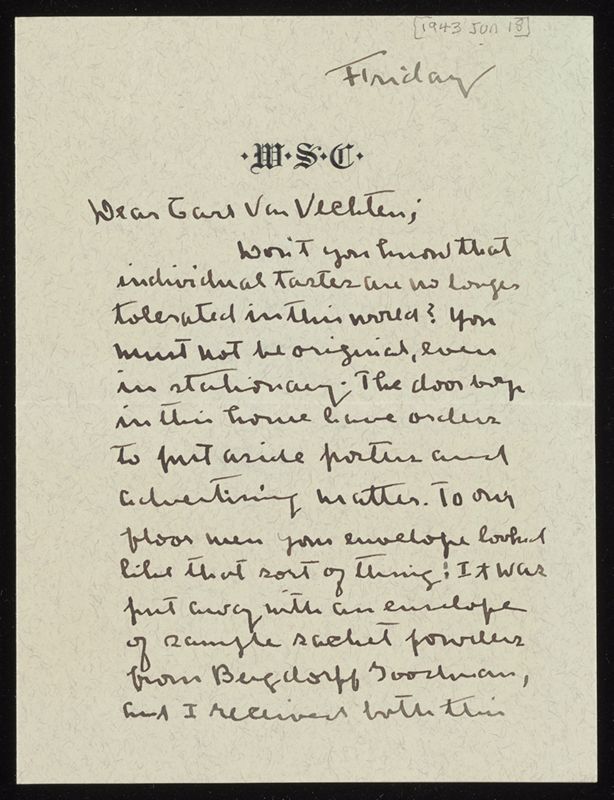 [1943 Jun 18]
Friday
·W·S·C·
Dear Carl Van Vechten;
Don't you know that
individual tastes are no longer
tolerated in this world? You
must not be original, even
in stationary. The door boys
in this house have orders
to put aside posters and
advertising matter. To our
floor men your envelope looked
like that sort of thing! It was
put away with an envelope
of sample sachet powders
from Bergdorff Goodman,
and I received both this